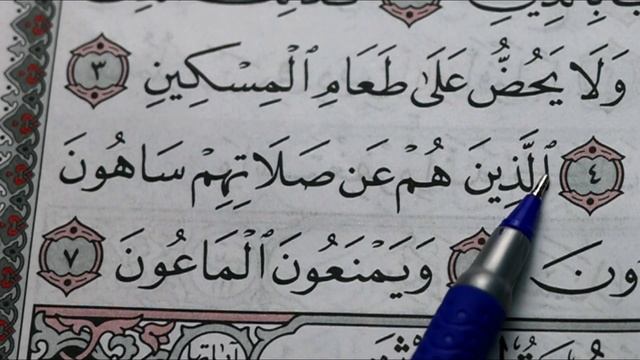 وَلَا يَحُضُّ عَلَىٰ طَعَامِ ٱلْمِسْكِينِ ٣
٤ ٱلَّذِينَ هُمْ عَن صَلَاتِهِمْ سَاهُونَ
وَيَمْنَعُونَ ٱلْمَاعُونَ ٧